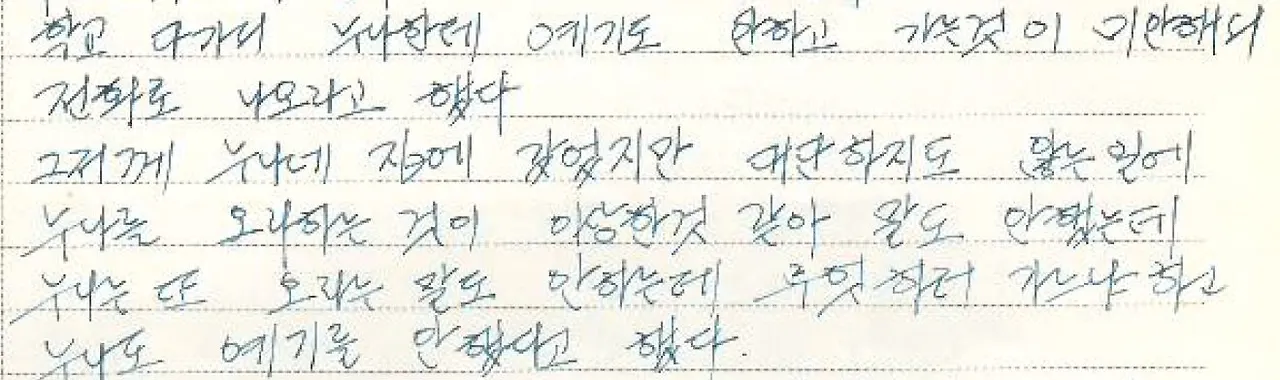 학교 다가다 누나한테 예기도 안하고 가는것이 미안해서
전화로 나오라고 했다
그저께 누나네 집에 갔었지만 대단하지도 않는일에
누나를 오라하는 것이 이상한것 같아 말도 안했는데
누나는 또 오라는 말도 안하는데 무엇하러 가느냐 하고
누나도 예기를 안했다고 했다.